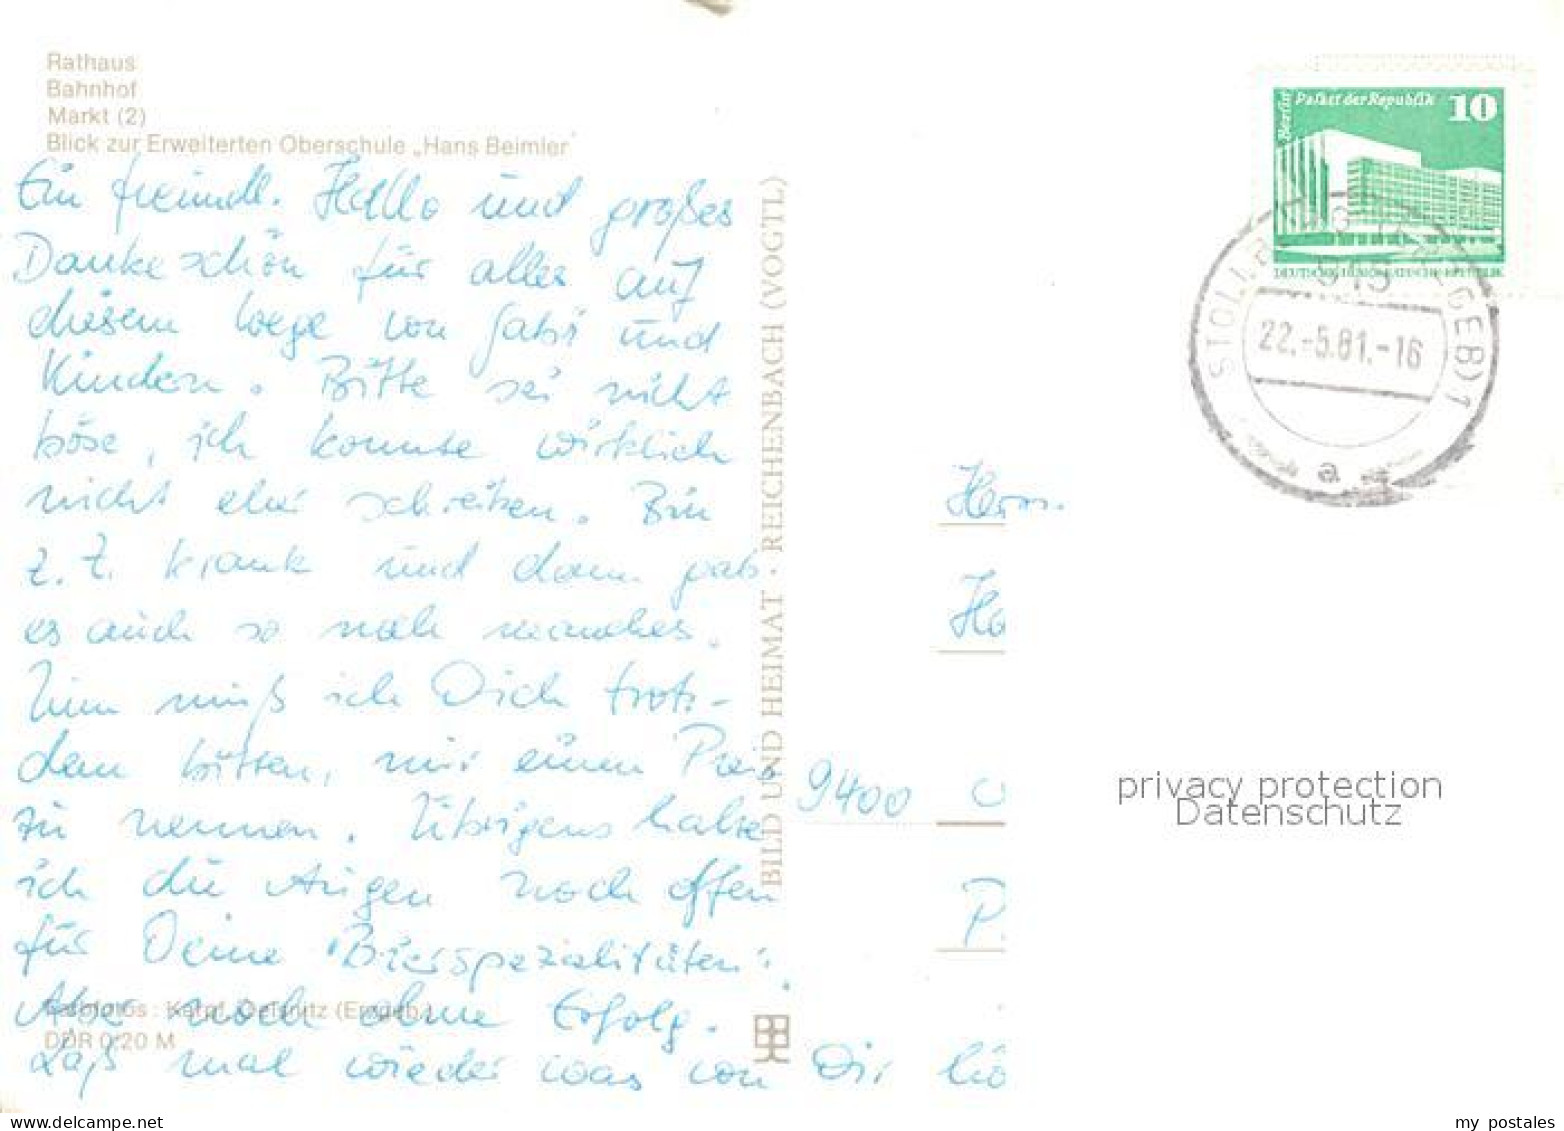 Rathaus
Bahnhof
Markt (2)
Blick zur Erweiterten Oberschule „Hans Beimler"
Ein freundl. Hallo und großes
Dankeschön für alles auf
diesem Wege von Gabi und
Kindern. Bitte sei nicht
böse, ich konnte wirklich
nicht eher schreiben. Bin
z. Z. krank und dann gab
es auch so noch manches.
Nun muß ich Dich trotz-
dem bitten, mir einen Preis
zu nennen. Übrigens halte
ich die Augen noch offen
für Deine "Bierspezialitäten".
Aber noch ohne Erfolg.
Laß mal wieder was von Dir hö
Farbfotos: Karpf, Oelsnitz (Erzgeb.)
DDR 0,20 M
BILD UND HEIMAT · REICHENBACH (VOGTL)
Berlin Palast der Republik 10
DEUTSCHE DEMOKRATISCHE REPUBLIK
STOLLBERG (ERZGEB) 1
915
22.-5.81.-16
a
Herrn
Ha
9400
P
privacy protection
Datenschutz
my postales